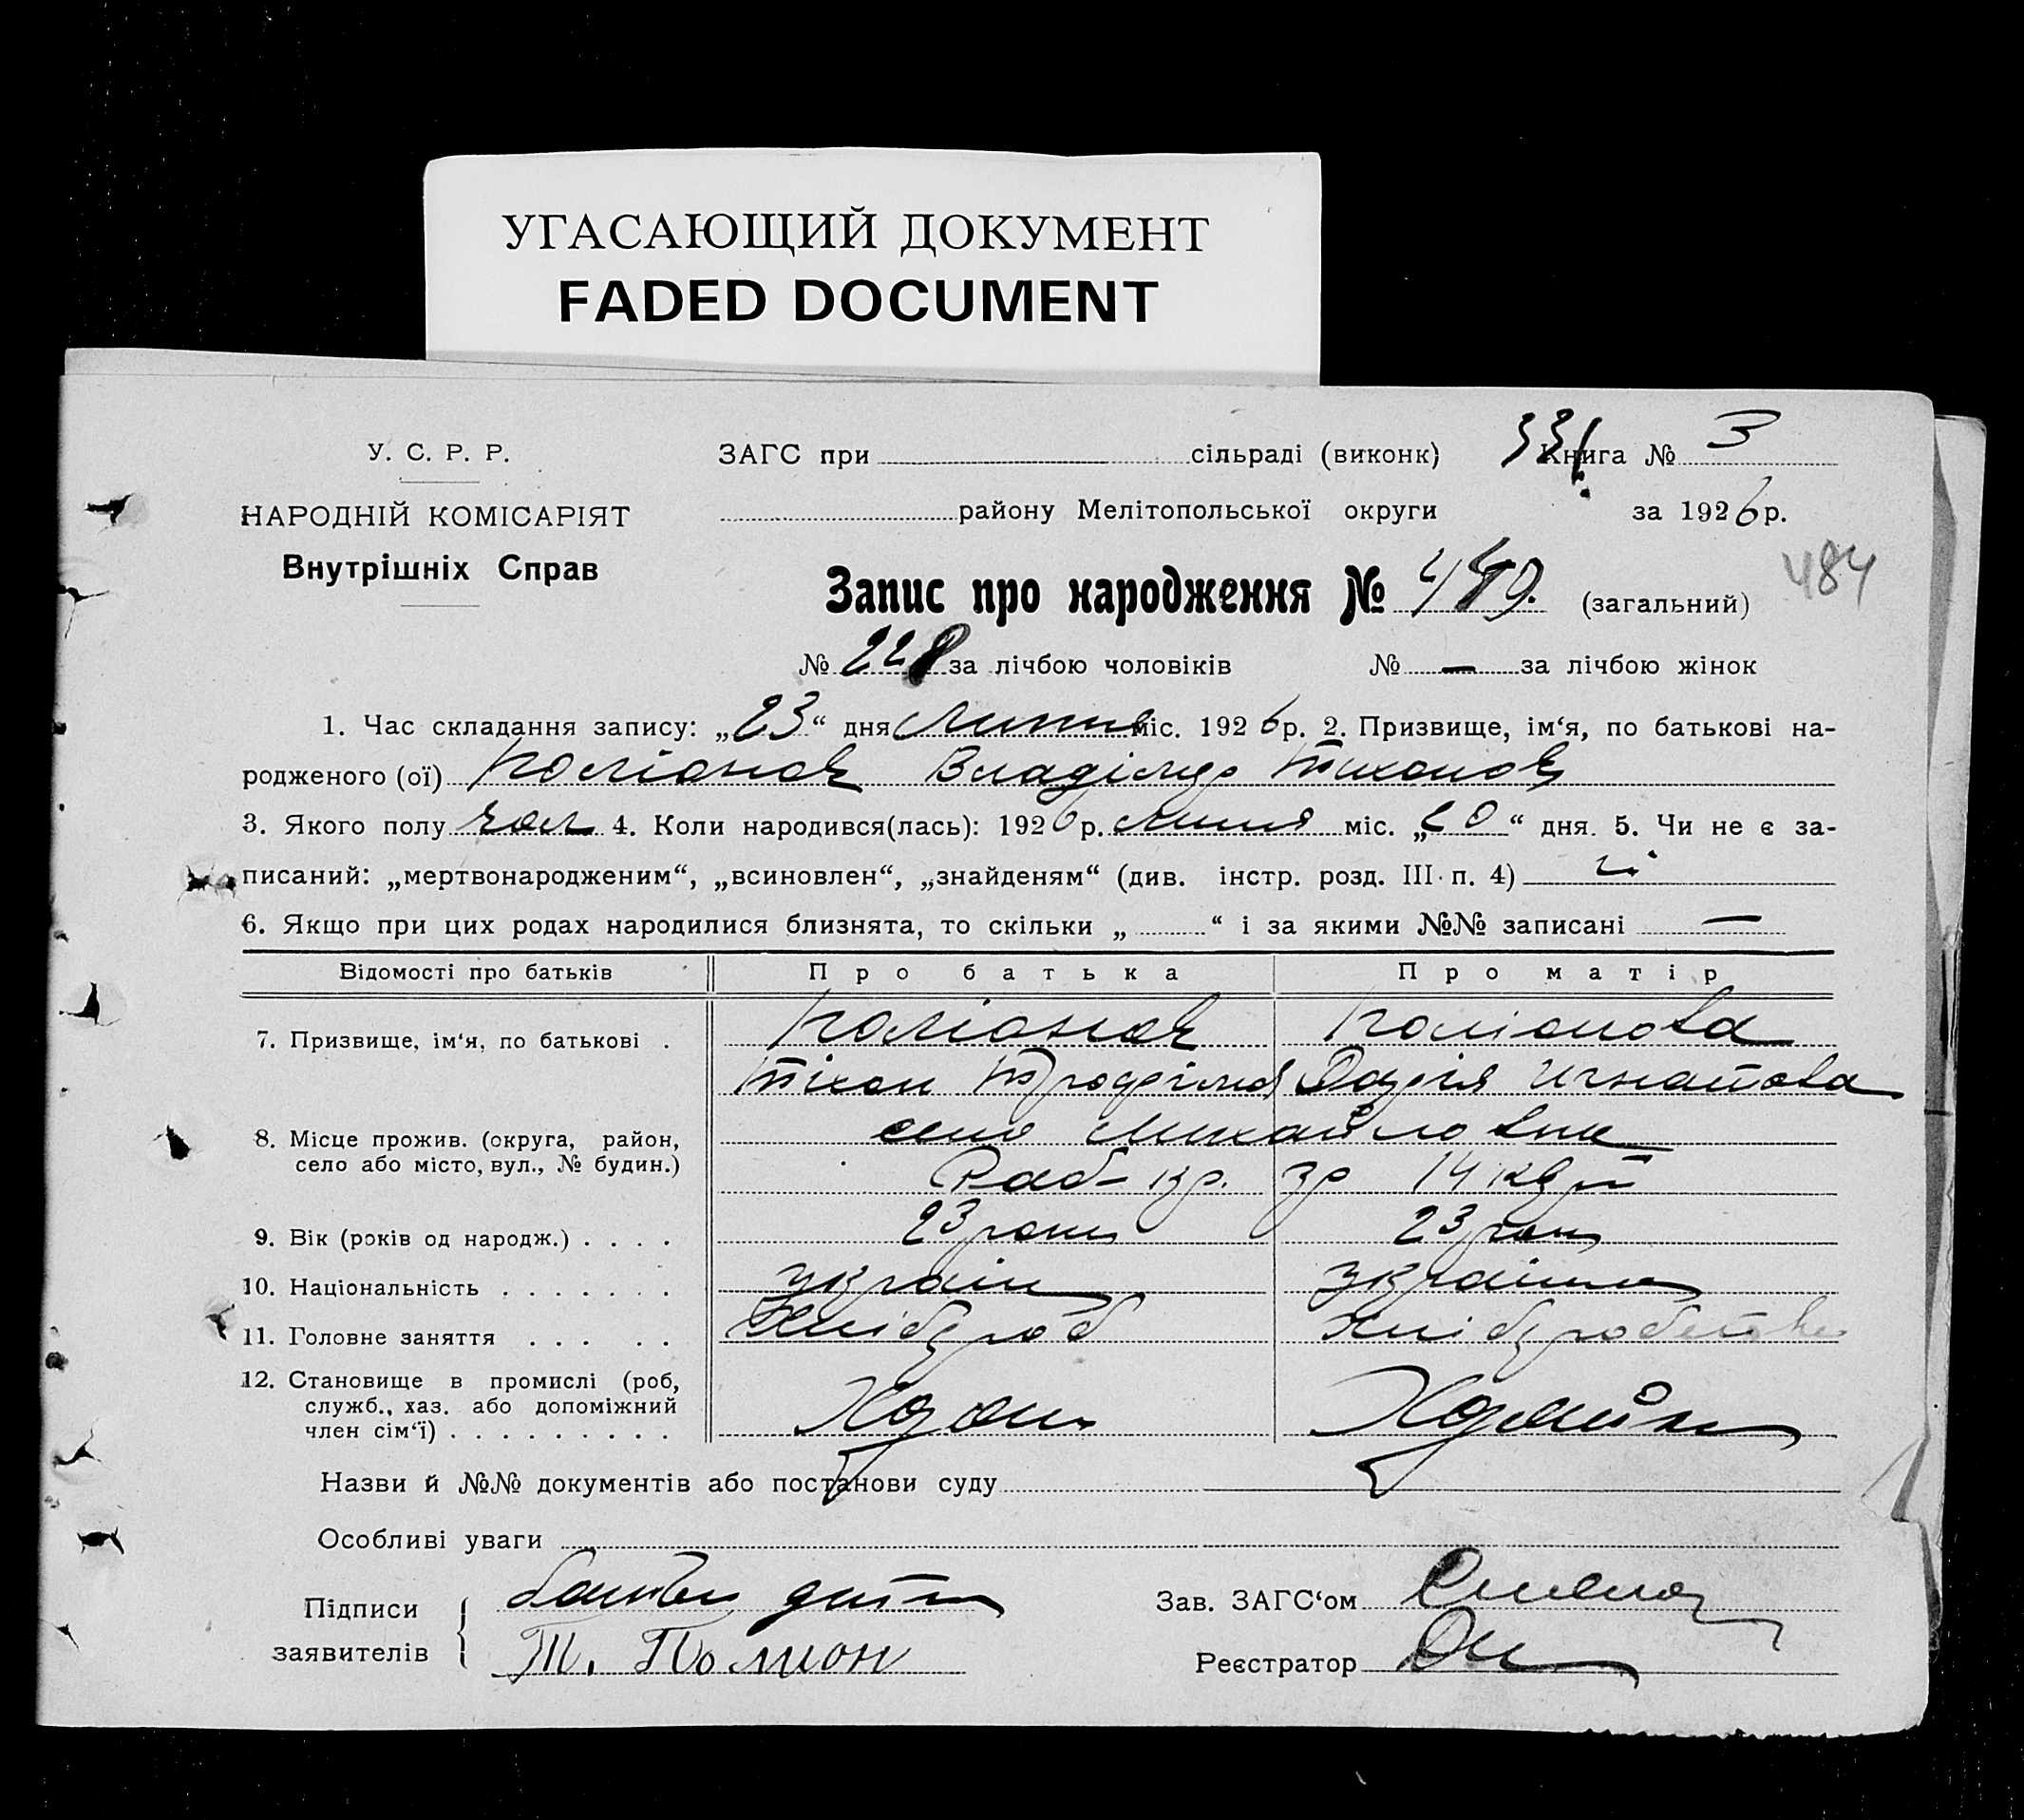 УГАСАЮЩИЙ ДОКУМЕНТ
FADED DOCUMENT
У. С. Р. Р.
НАРОДНІЙ КОМІСАРІЯТ
Внутрішніх Справ
ЗАГС при сільраді (виконк) Книга № 3
району Мелітопольської округи за 1926 р.
Запис про народження № (загальний) 484
№ 228 за лічбою чоловіків № — за лічбою жінок
1. Час складання запису: „23“ дня липня міс. 1926 р. 2. Призвище, ім‘я, по батькові на-
родженого (ої) Поліонов Владімир Тихонов
3. Якого полу чол 4. Коли народився(лась): 1926 р. липня міс. „20“ дня. 5. Чи не є за-
писаний: „мертвонародженим“, „всиновлен“, „знайденям“ (див. інстр. розд. III п. 4) ні
6. Якщо при цих родах народилися близнята, то скільки „ “ і за якими №№ записані —
Відомості про батьків Про батька Про матір
7. Призвище, ім‘я, по батькові . Поліонов Поліонова
Тіхон Трофімов Дарія Игнатова
8. Місце прожив. (округа, район, село або місто, вул., № будин.) село Михайловка
14
9. Вік (років од народж.) . . . . 23 роки 23 роки
10. Національність . . . . . . . україн українка
11. Головне заняття . . . . . Хлібороб
12. Становище в промислі (роб, служб., хаз. або допоміжний член сім‘ї) . . . . . . . . .
Назви й №№ документів або постанови суду
Особливі уваги
Підписи заявителів батько дити
Т. Полион
Зав. ЗАГС‘ом
Реєстратор